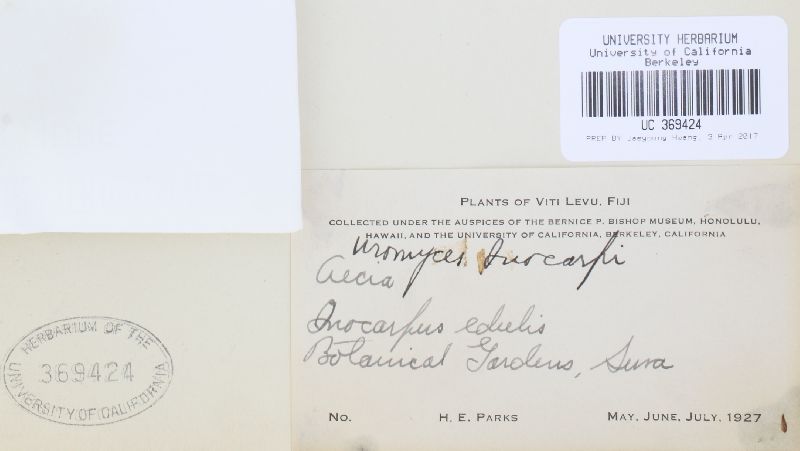 UNIVERSITY HERBARIUM
University of California
Berkeley
UC 369424
PREP BY Jaeyoung Hwang, 3 Apr 2017
PLANTS OF VITI LEVU, FIJI
COLLECTED UNDER THE AUSPICES OF THE BERNICE P. BISHOP MUSEUM, HONOLULU,
HAWAII, AND THE UNIVERSITY OF CALIFORNIA, BERKELEY, CALIFORNIA
Uromyces Inocarpi
Aecia
Inocarpus edulis
Botanical Gardens, Suva
No. H. E. PARKS MAY, JUNE, JULY, 1927
HERBARIUM OF THE
369424
UNIVERSITY OF CALIFORNIA